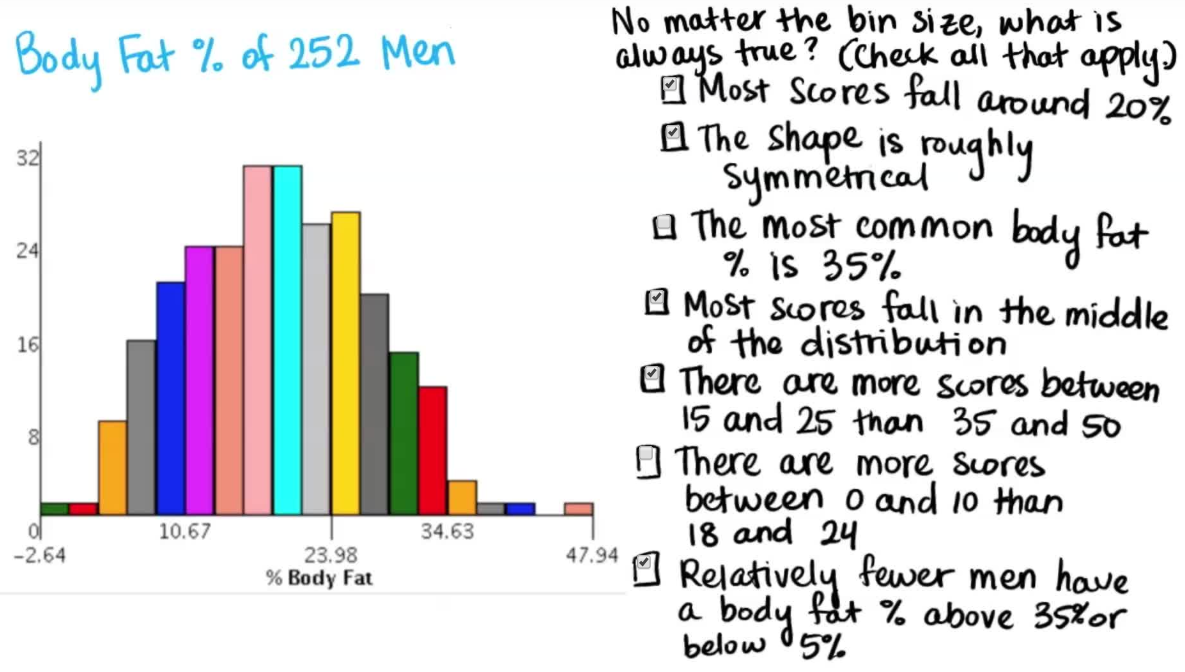 Body Fat % of 252 Men
32
24
16
8
0
-2.64
10.67
23.98
34.63
47.94
% Body Fat
No matter the bin size, what is
always true? (Check all that apply)
Most scores fall around 20%
The shape is roughly
symmetrical
The most common body fat
% is 35%
Most scores fall in the middle
of the distribution
There are more scores between
15 and 25 than 35 and 50
There are more scores
between 0 and 10 than
18 and 24
Relatively fewer men have
a body fat % above 35% or
below 5%